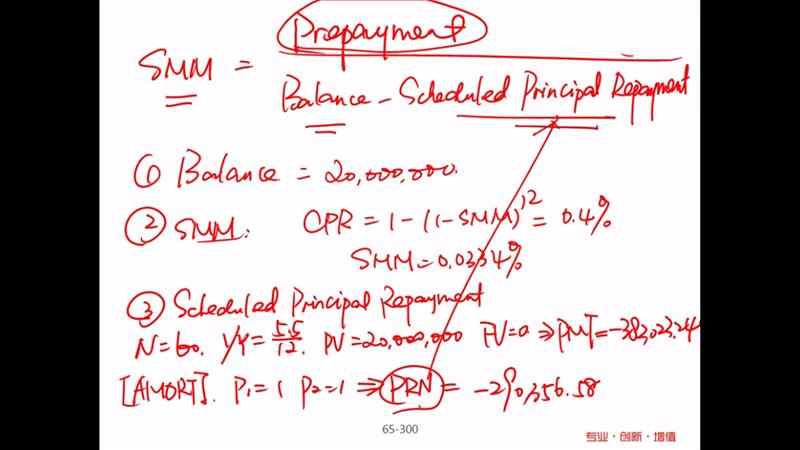 Prepayment
SMM =
Balance - Scheduled Principal Repayment
① Balance = 20,000,000.
② SMM: CPR = 1 - (1-SMM)^12 = 0.4%
SMM = 0.0334%
③ Scheduled Principal Repayment
N=60. I/Y = 5.5/12. PV=20,000,000 FV=0 ⇒ PMT=-382,023.24
[AMORT]. P1=1 P2=1 ⇒ PRN = -290,356.58
65-300
专业·创新·增值